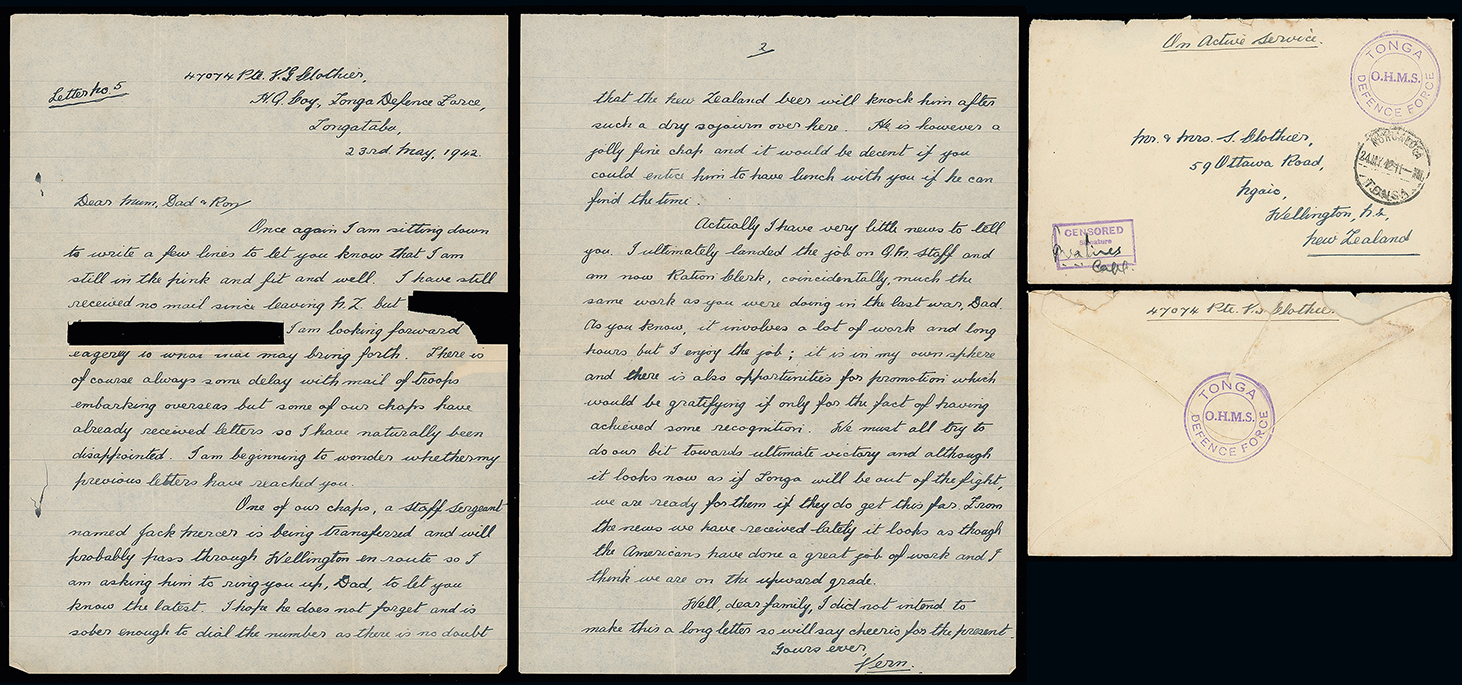 Letter no. 5
47074 Pte. V. G. Clothier,
H.Q. Coy, Tonga Defence Force,
Tongatabu,
23rd. May, 1942.
Dear Mum, Dad & Ron,
Once again I am sitting down
to write a few lines to let you know that I am
still in the pink and fit and well. I have still
received no mail since leaving N.Z. but
I am looking forward
eagerly to what mail may bring forth. There is
of course always some delay with mail of troops
embarking overseas but some of our chaps have
already received letters so I have naturally been
disappointed. I am beginning to wonder whether my
previous letters have reached you.
One of our chaps, a staff sergeant
named Jack Mercer is being transferred and will
probably pass through Wellington en route so I
am asking him to ring you up, Dad, to let you
know the latest. I hope he does not forget and is
sober enough to dial the number as there is no doubt
2
that the New Zealand beer will knock him after
such a dry sojourn over here. He is however a
jolly fine chap and it would be decent if you
could entice him to have lunch with you if he can
find the time.
Actually I have very little news to tell
you. I ultimately landed the job on Q.M. staff and
am now Ration Clerk, coincidentally, much the
same work as you were doing in the last war, Dad.
As you know, it involves a lot of work and long
hours but I enjoy the job; it is in my own sphere
and there is also opportunities for promotion which
would be gratifying if only for the fact of having
achieved some recognition. We must all try to
do our bit towards ultimate victory and although
it looks now as if Tonga will be out of the fight,
we are ready for them if they do get this far. From
the news we have received lately it looks as though
the Americans have done a great job of work and I
think we are on the upward grade.
Well, dear family, I did not intend to
make this a long letter so will say cheerio for the present.
Yours ever,
Vern.
On Active Service.
TONGA
O.H.M.S.
DEFENCE FORCE
Mr. & Mrs. S. Clothier,
59 Ottawa Road,
Ngaio,
Wellington, N.Z.,
New Zealand
24 MAY 42
TONGA
CENSORED
Signature
Capt.
47074 Pte. V. G. Clothier.
TONGA
O.H.M.S.
DEFENCE FORCE